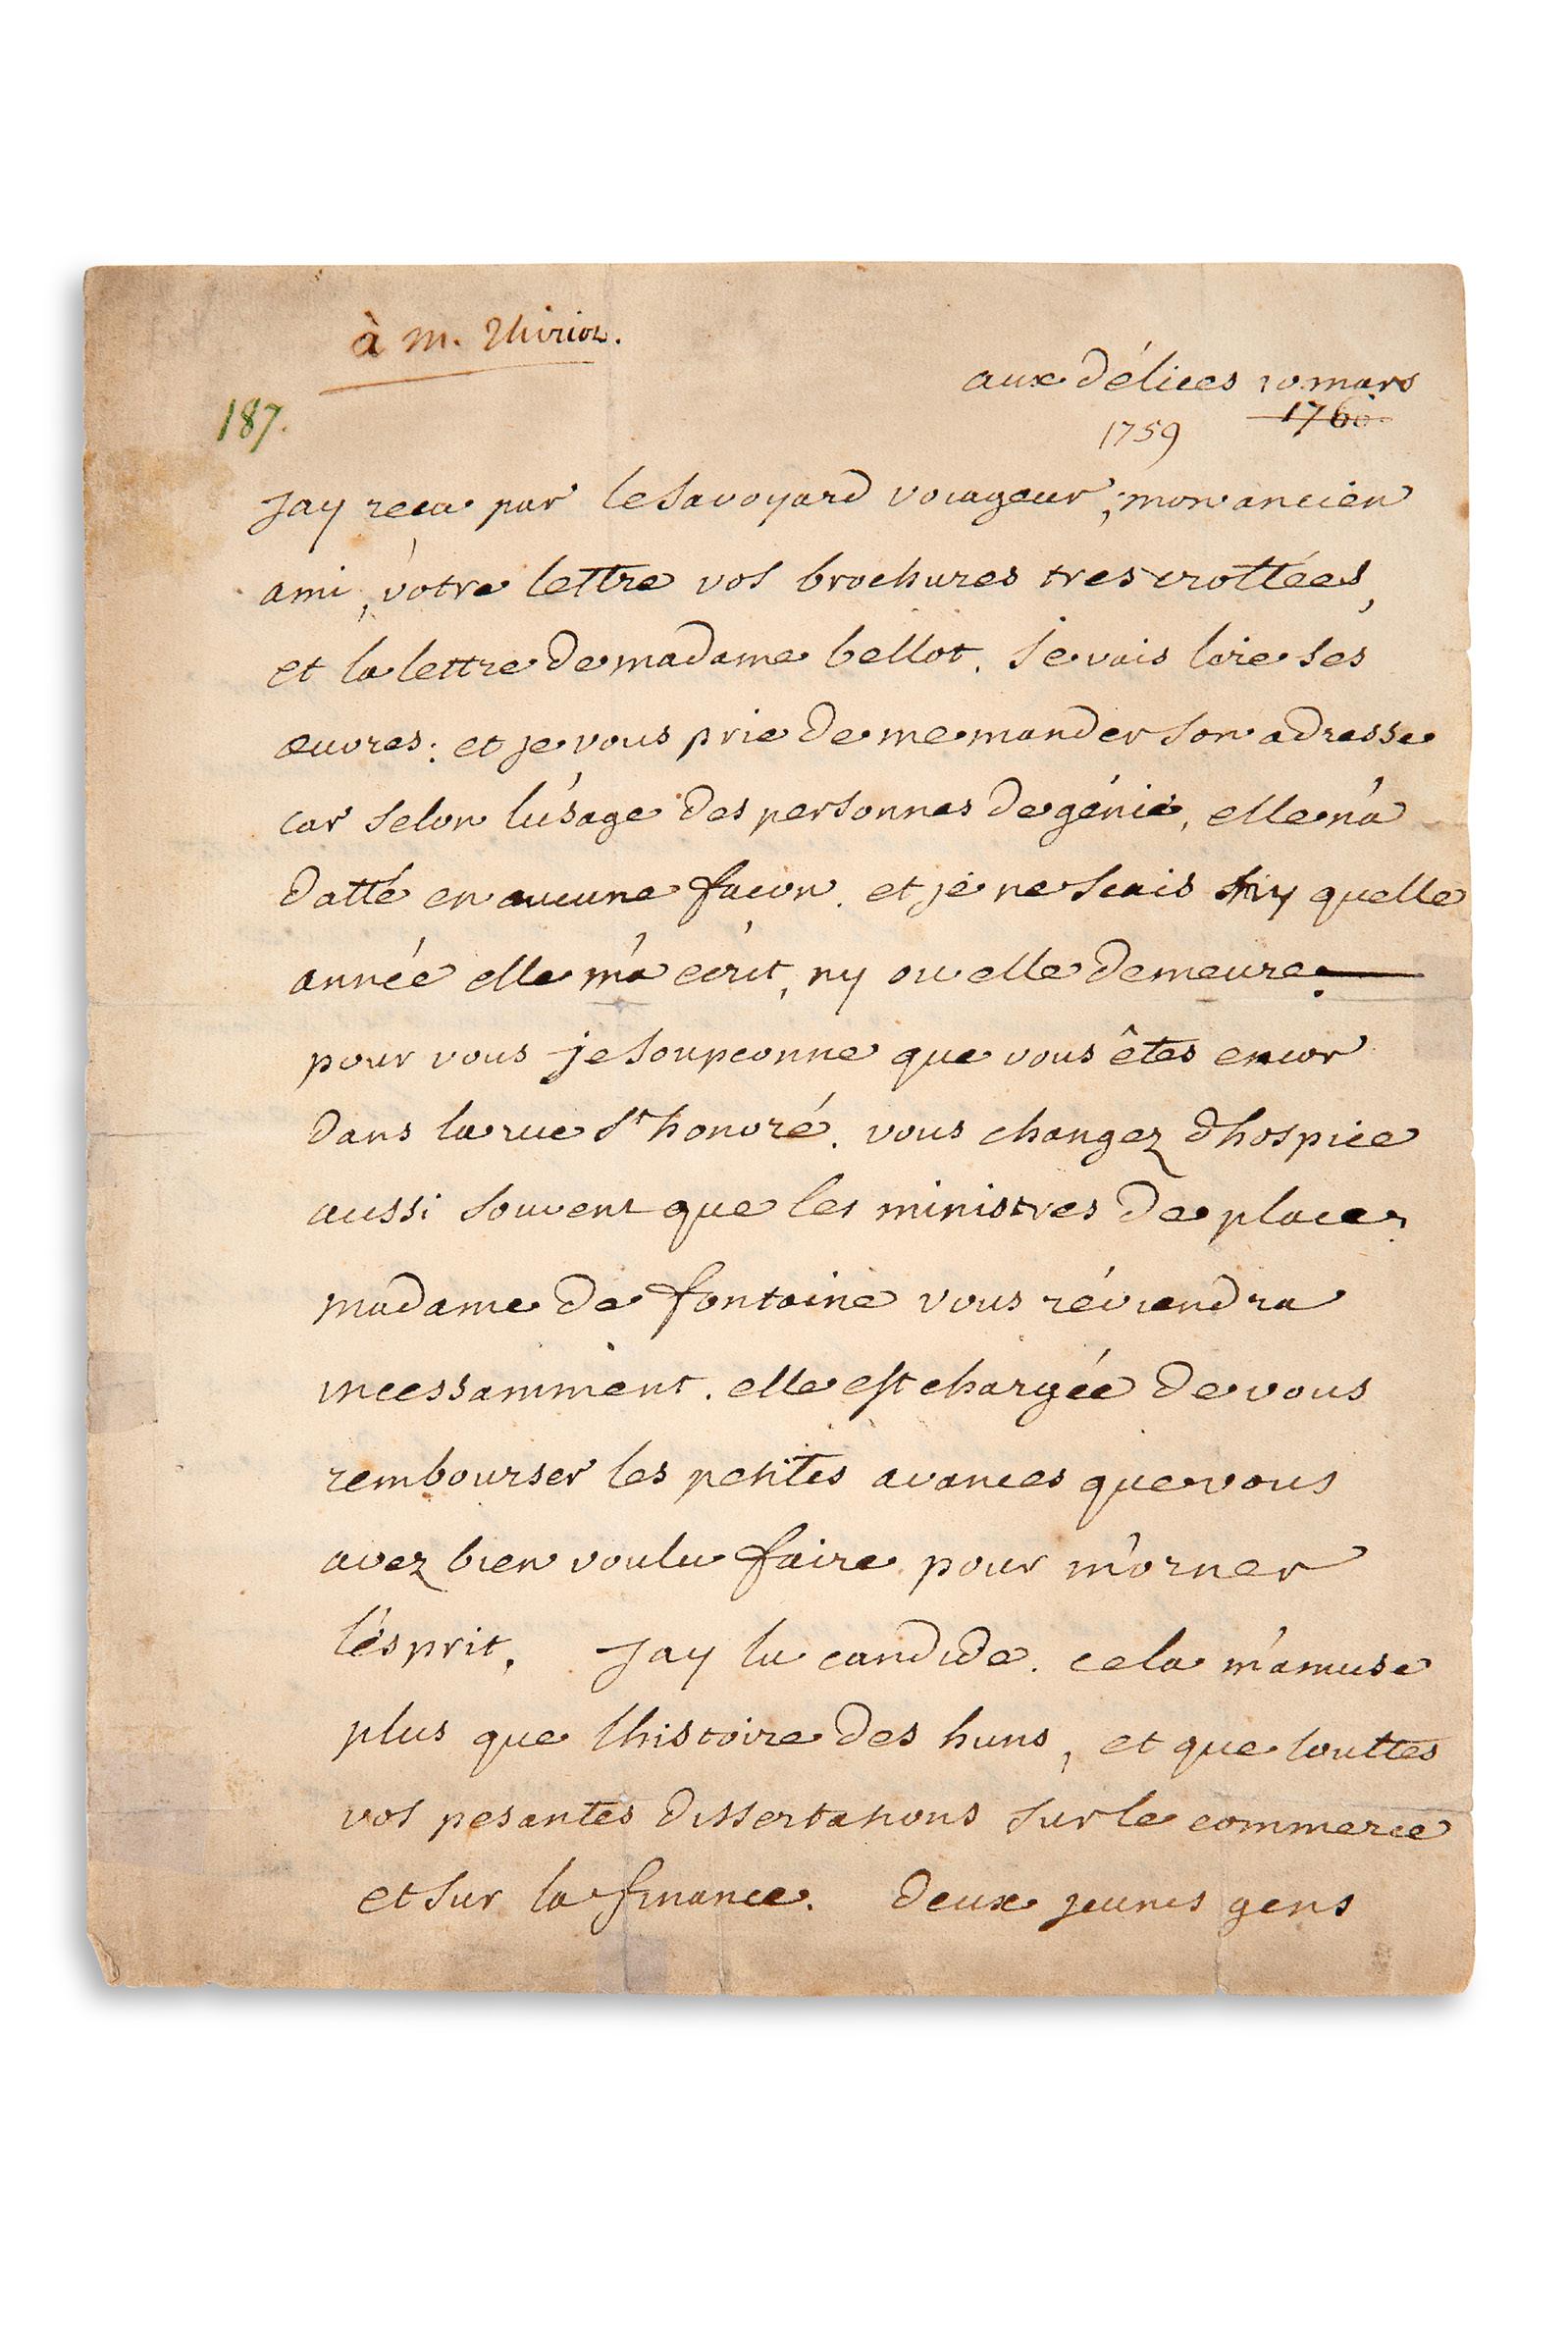 à M. Thiriot.
aux délices 10 mars
187.
1759 1760
Jay reçu par le Savoyard voiageur, mon ancien
ami, votre lettre vos brochures tres crottées,
et la lettre de madame bellot. Je vais lire ses
œuvres: et je vous prie de me mander son adresse
car selon l'usage des personnes de génie, elle n'a
datté en aucune façon. et je ne scais ny quelle
année elle m'a écrit, ny ou elle demeure.
pour vous je soupçonne que vous êtes encor
dans la rue St honoré. vous changez d'hospice
aussi souvent que les ministres de place.
madame de fontaine vous reviendra
incessamment. elle est chargée de vous
rembourser les petites avances que vous
avez bien voulu faire pour m'orner
l'esprit. Jay lu candide. cela m'amuse
plus que l'histoire des huns, et que touttes
vos pesantes dissertations sur le commerce
et sur la finance. deux jeunes gens